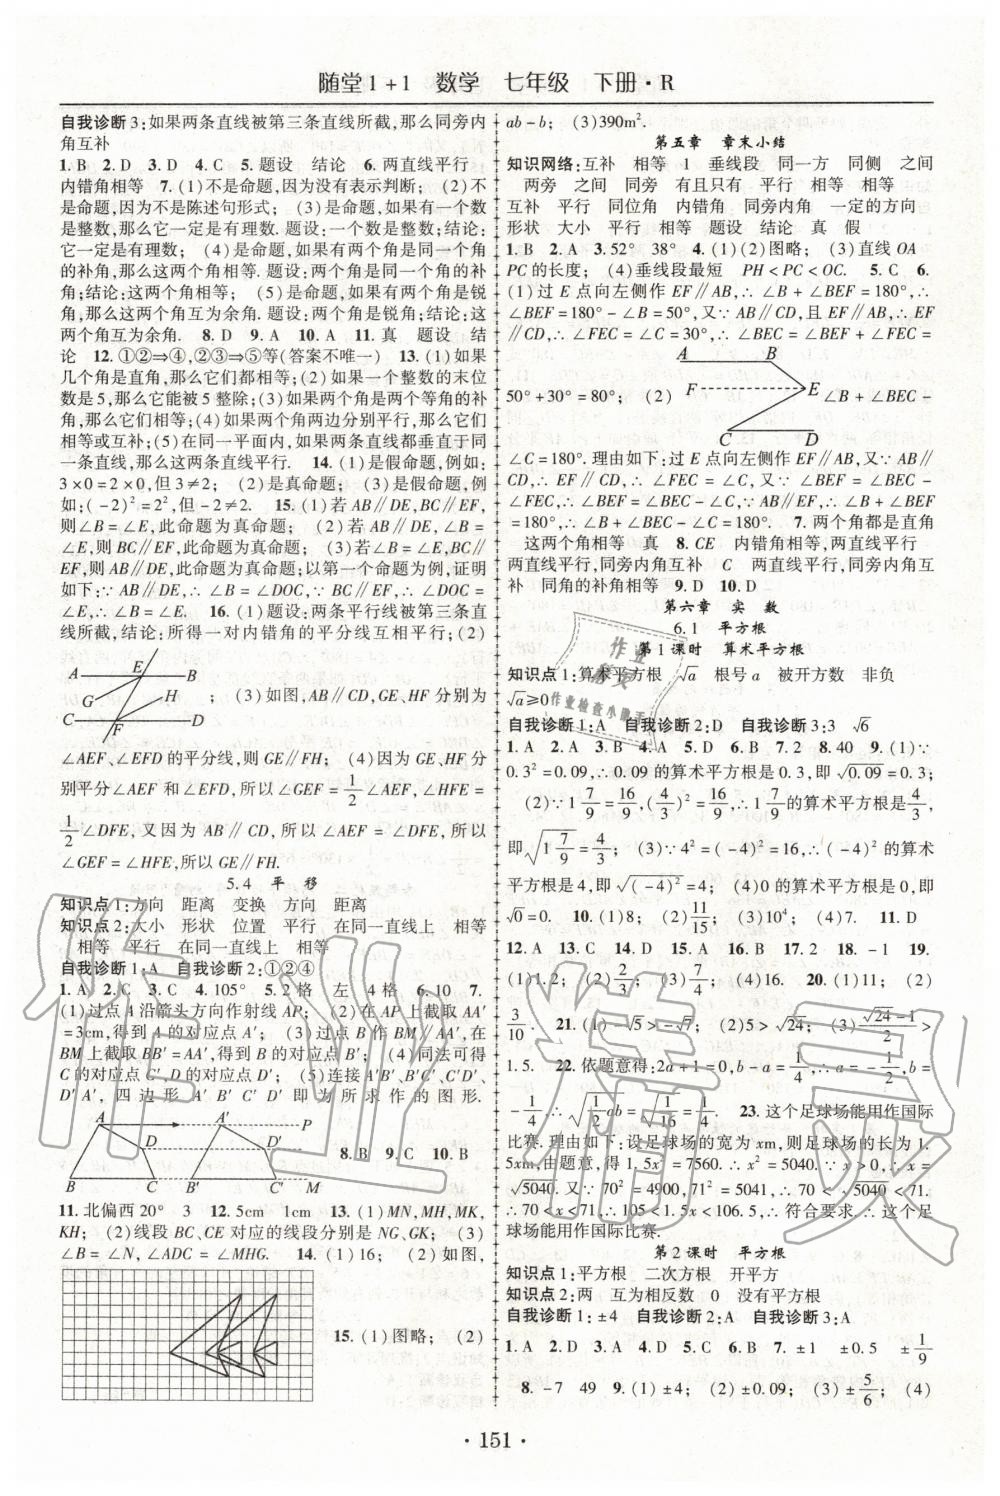 随堂1+1 数学 七年级 下册·R
自我诊断3:如果两条直线被第三条直线所截,那么同旁内
角互补
1.B 2.D 3.D 4.C 5.题设 结论 6.两直线平行
内错角相等 7.(1)不是命题,因为没有表示判断;(2)不
是命题,因为不是陈述句形式;(3)是命题,如果有一个数
是整数,那么它一定是有理数.题设:一个数是整数;结论:
它一定是有理数;(4)是命题,如果有两个角是同一个角
的补角,那么这两个角相等.题设:两个角是同一个角的补
角;结论:这两个角相等;(5)是命题,如果两个角是锐
角,那么这两个角互为余角.题设:两个角是锐角;结论:这
两个角互为余角. 8.D 9.A 10.A 11.真 题设 结
论 12.①②⇒④,②③⇒⑤等(答案不唯一) 13.(1)如果
几个角是直角,那么它们都相等;(2)如果一个整数的末位
数是5,那么它能被5整除;(3)如果两个角是两个等角的补
角,那么它们相等;(4)如果两个角两边分别平行,那么它们
相等或互补;(5)在同一平面内,如果两条直线都垂直于同
一条直线,那么这两条直线平行. 14.(1)是假命题,例如:
3×0=2×0,但3≠2;(2)是真命题;(3)是假命题,例
如:(-2)²=2²,但-2≠2. 15.(1)若AB∥DE,BC∥EF,
则∠B=∠E,此命题为真命题;(2)若AB∥DE,∠B=
∠E,则BC∥EF,此命题为真命题;(3)若∠B=∠E,BC∥
EF,则AB∥DE,此命题为真命题;以第一个命题为例,证明
如下:∵AB∥DE,∴∠B=∠DOC,∵BC∥EF,∴∠DOC=
∠E,∴∠B=∠E. 16.(1)题设:两条平行线被第三条直
线所截,结论:所得一对内错角的平分线互相平行;(2)
A E B G H C F D
;(3)如图,AB∥CD,GE、HF分别为
∠AEF、∠EFD的平分线,则GE∥FH;(4)因为GE、HF分
别平分∠AEF和∠EFD,所以∠GEF=1/2∠AEF,∠HFE=
1/2∠DFE,又因为AB∥CD,所以∠AEF=∠DFE,所以
∠GEF=∠HFE,所以GE∥FH.
5.4 平移
知识点1:方向 距离 变换 方向 距离
知识点2:大小 形状 位置 平行 在同一直线上 相等
相等 平行 在同一直线上 相等
自我诊断1:A 自我诊断2:①②④
1.A 2.C 3.C 4.105° 5.2格 左 4格 6.10 7.
(1)过点A沿箭头方向作射线AP;(2)在AP上截取AA′
=3cm,得到A的对应点A′;(3)过点B作BM∥AA′,在
BM上截取BB′=AA′,得到B的对应点B′;(4)同法可得
C的对应点C′、D的对应点D′;(5)连接A′B′、B′C′、C′D′、
D′A′,四边形A′B′C′D′即为所求作的图形.
A A′ P D D′ B C B′ C′ M
8.B 9.C 10.B
11.北偏西20° 3 12.5cm 1cm 13.(1)MN,MH,MK,
KH;(2)线段BC、CE对应的线段分别是NG、GK;(3)
∠B=∠N,∠ADC=∠MHG. 14.(1)16;(2)如图,
15.(1)图略;(2)
ab-b;(3)390m².
第五章 章末小结
知识网络:互补 相等 1 垂线段 同一方 同侧 之间
两旁 之间 同旁 有且只有 平行 相等 相等
互补 平行 同位角 内错角 同旁内角 一定的方向
形状 大小 平行 相等 题设 结论 真 假
1.B 2.A 3.52° 38° 4.(1)(2)图略;(3)直线OA
PC的长度;(4)垂线段最短 PH<PC<OC. 5.C 6.
(1)过E点向左侧作EF∥AB,∴∠B+∠BEF=180°,∴
∠BEF=180°-∠B=50°,又∵AB∥CD,且EF∥AB,∴EF
∥CD,∴∠FEC=∠C=30°,∴∠BEC=∠BEF+∠FEC=
50°+30°=80°;(2)
A B F E C D
∠B+∠BEC-
∠C=180°.理由如下:过E点向左侧作EF∥AB,又∵AB∥
CD,∴EF∥CD,∴∠FEC=∠C,又∵∠BEF=∠BEC-
∠FEC,∴∠BEF=∠BEC-∠C,又∵AB∥EF,∴∠B+∠BEF
=180°,∴∠B+∠BEC-∠C=180°. 7.两个角都是直角
这两个角相等 真 8.CE 内错角相等,两直线平行
两直线平行,同旁内角互补 C 两直线平行,同旁内角互
补 同角的补角相等 9.D 10.D
第六章 实数
6.1 平方根
第1课时 算术平方根
知识点1:算术平方根 √a 根号a 被开方数 非负
√a≥0
自我诊断1:A 自我诊断2:D 自我诊断3:3 √6
1.A 2.A 3.B 4.A 5.D 6.B 7.2 8.40 9.(1)∵
0.3²=0.09,∴0.09的算术平方根是0.3,即√0.09=0.3;
(2)∵1 7/9=16/9,(4/3)²=16/9,∴1 7/9的算术平方根是4/3,
即√(1 7/9)=4/3;(3)∵4²=(-4)²=16,∴(-4)²的算术
平方根是4,即√(-4)²=4;(4)0的算术平方根是0,即
√0=0. 10.(1)8;(2)11/15;(3)10⁴;(4)2. 11.D
12.A 13.C 14.D 15.A 16.B 17.2 18.-1 19.
(1)1.2;(2)2/3;(3)7/4;(4)16. 20.(1)11;(2)
3/10. 21.(1)-√5>-√7;(2)5>√24;(3)(√24-1)/2>
1.5. 22.依题意得:2a+1=0,∴a=-1/2,∴b=
-1/4,∴√(1/2 ab)=√(1/16)=1/4. 23.这个足球场能用作国际
比赛.理由如下:设足球场的宽为xm,则足球场的长为1.
5xm,由题意,得1.5x²=7560.∴x²=5040.∵x>0,∴x=
√5040.又∵70²=4900,71²=5041,∴70<√5040<71.
∴70<x<71,∴105<1.5x<106.5,∴符合要求.∴这个足
球场能用作国际比赛.
第2课时 平方根
知识点1:平方根 二次方根 开平方
知识点2:两 互为相反数 0 没有平方根
自我诊断1:±4 自我诊断2:A 自我诊断3:A
1.A 2.A 3.D 4.D 5.C 6.B 7.±1 ±0.5 ±1/9
8.-7 49 9.(1)±4;(2)±0.09;(3)±5/6;(4)
作业
精灵
作业检查小助手
作业精灵
·151·